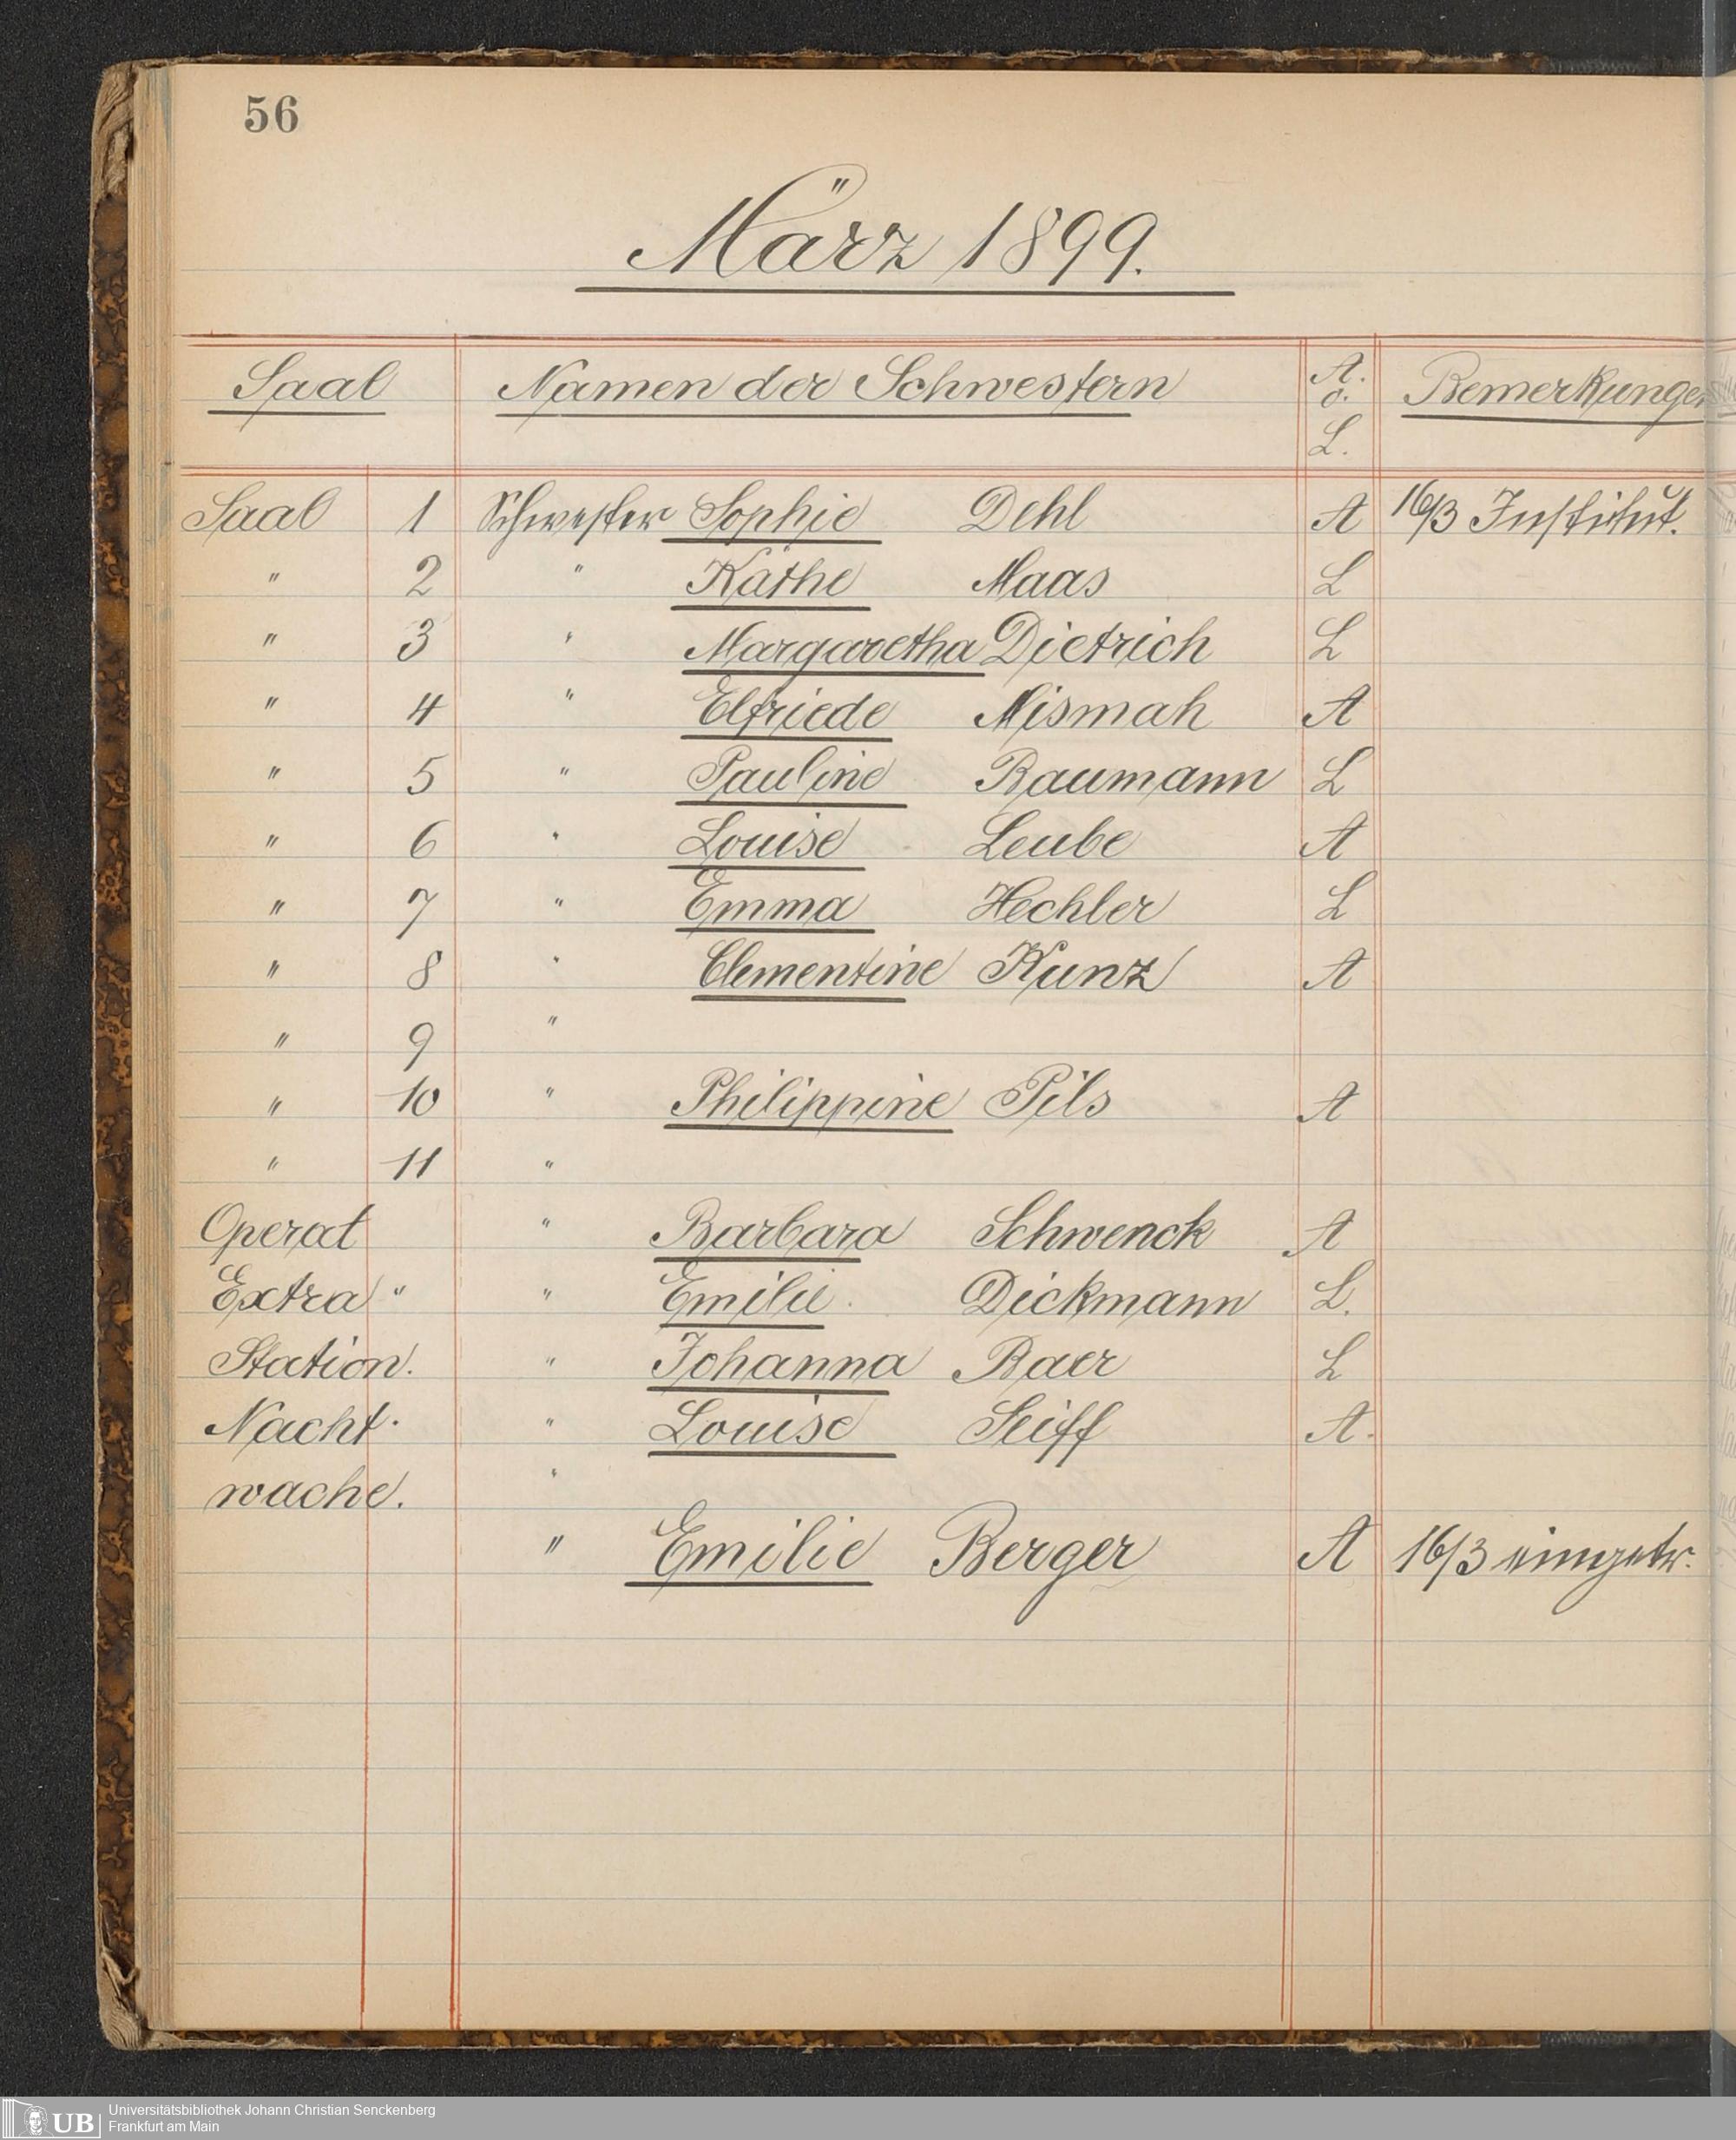 56
März 1899.
Saal Namen der Schwestern A. o. L. Bemerkungen
Saal 1 Schwester Sophie Dehl A 16/3 Institut.
" 2 " Käthe Maas L
" 3 " Margaretha Dietrich L
" 4 " Elfriede Mismah A
" 5 " Pauline Baumann L
" 6 " Louise Leube A
" 7 " Emma Hechler L
" 8 " Clementine Kunz A
" 9 "
" 10 " Philippine Pils A
" 11 "
Operat " Barbara Schwenck A
Extra " " Emilie Dickmann L.
Station. " Johanna Baer L
Nacht. " Louise Seiff A.
wache. "
" Emilie Berger A 16/3 eingetr.
UB Universitätsbibliothek Johann Christian Senckenberg
Frankfurt am Main